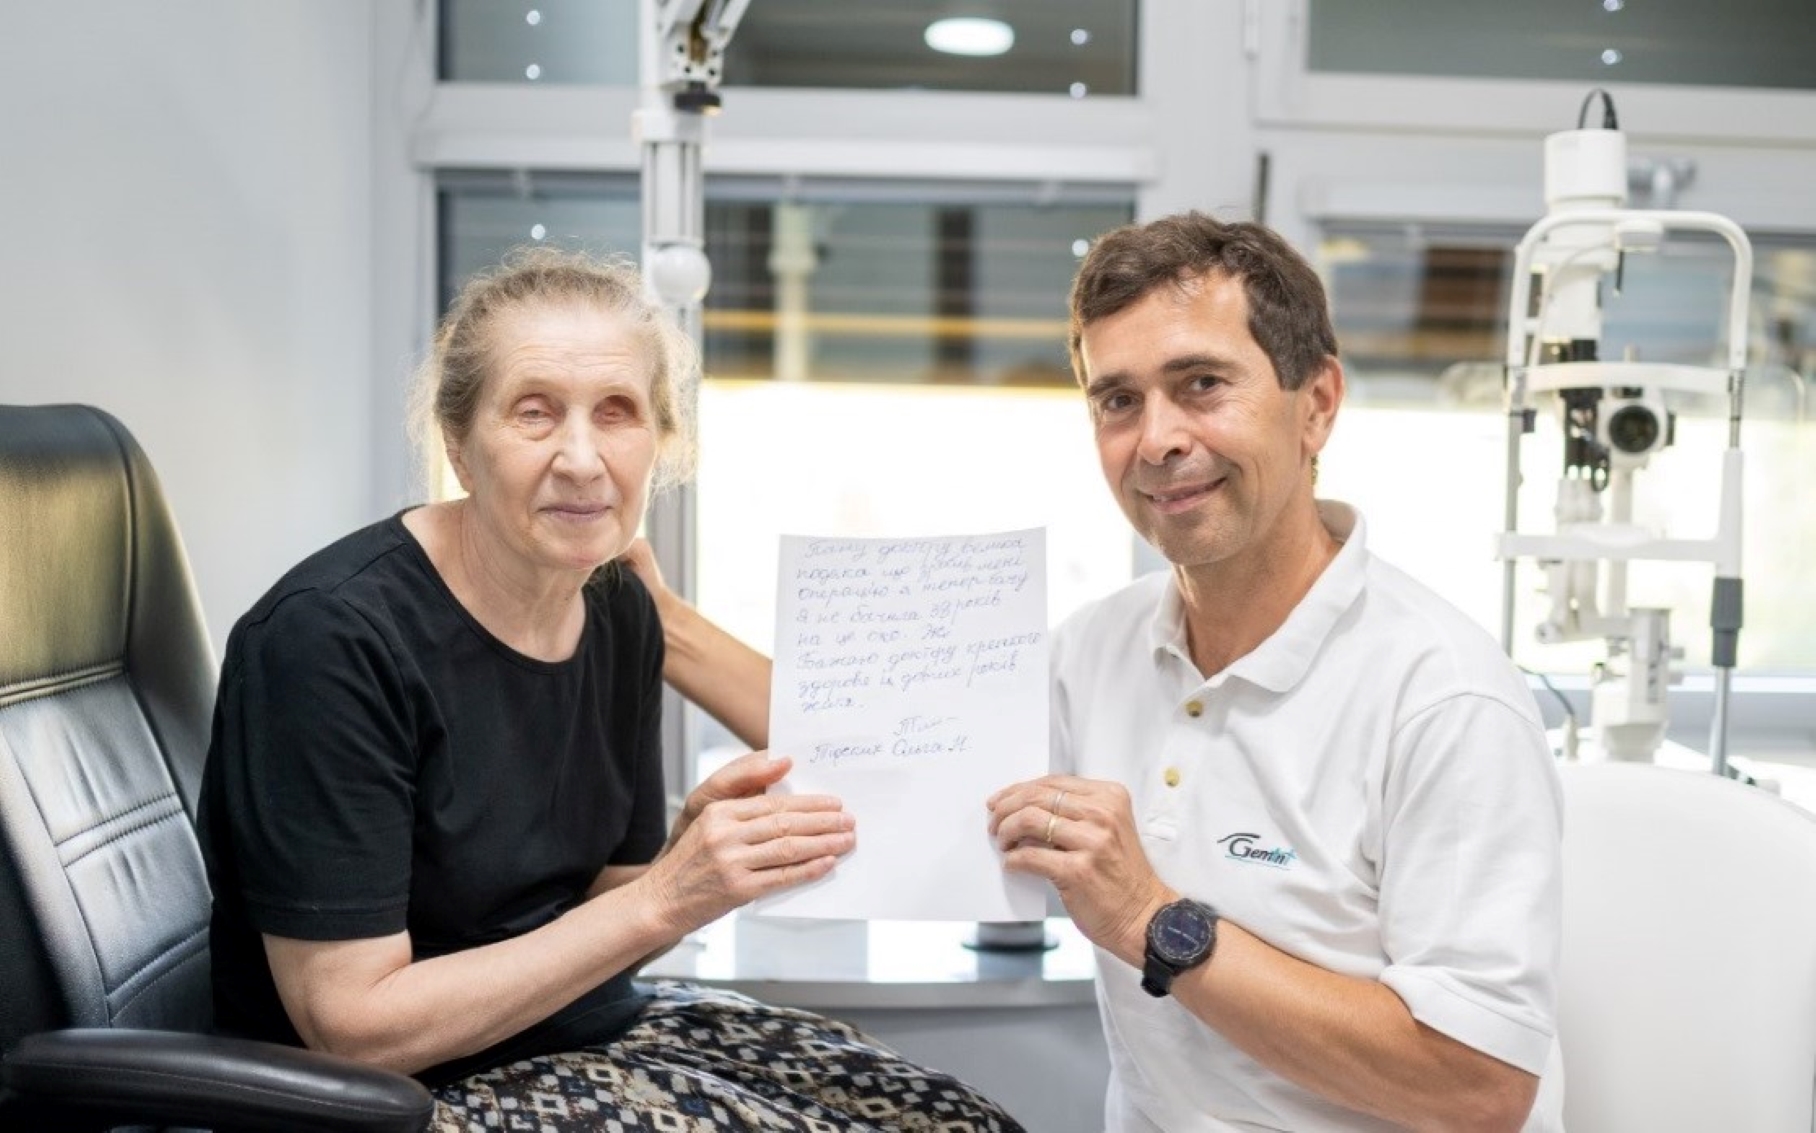 Пану доктору велика
подяка що зробив мені
операцію я тепер бачу
Я не бачила 32 років
на це око.
Бажаю доктору крепкого
здоровя и довгих років
життя.
Ольга Н.
Gemini